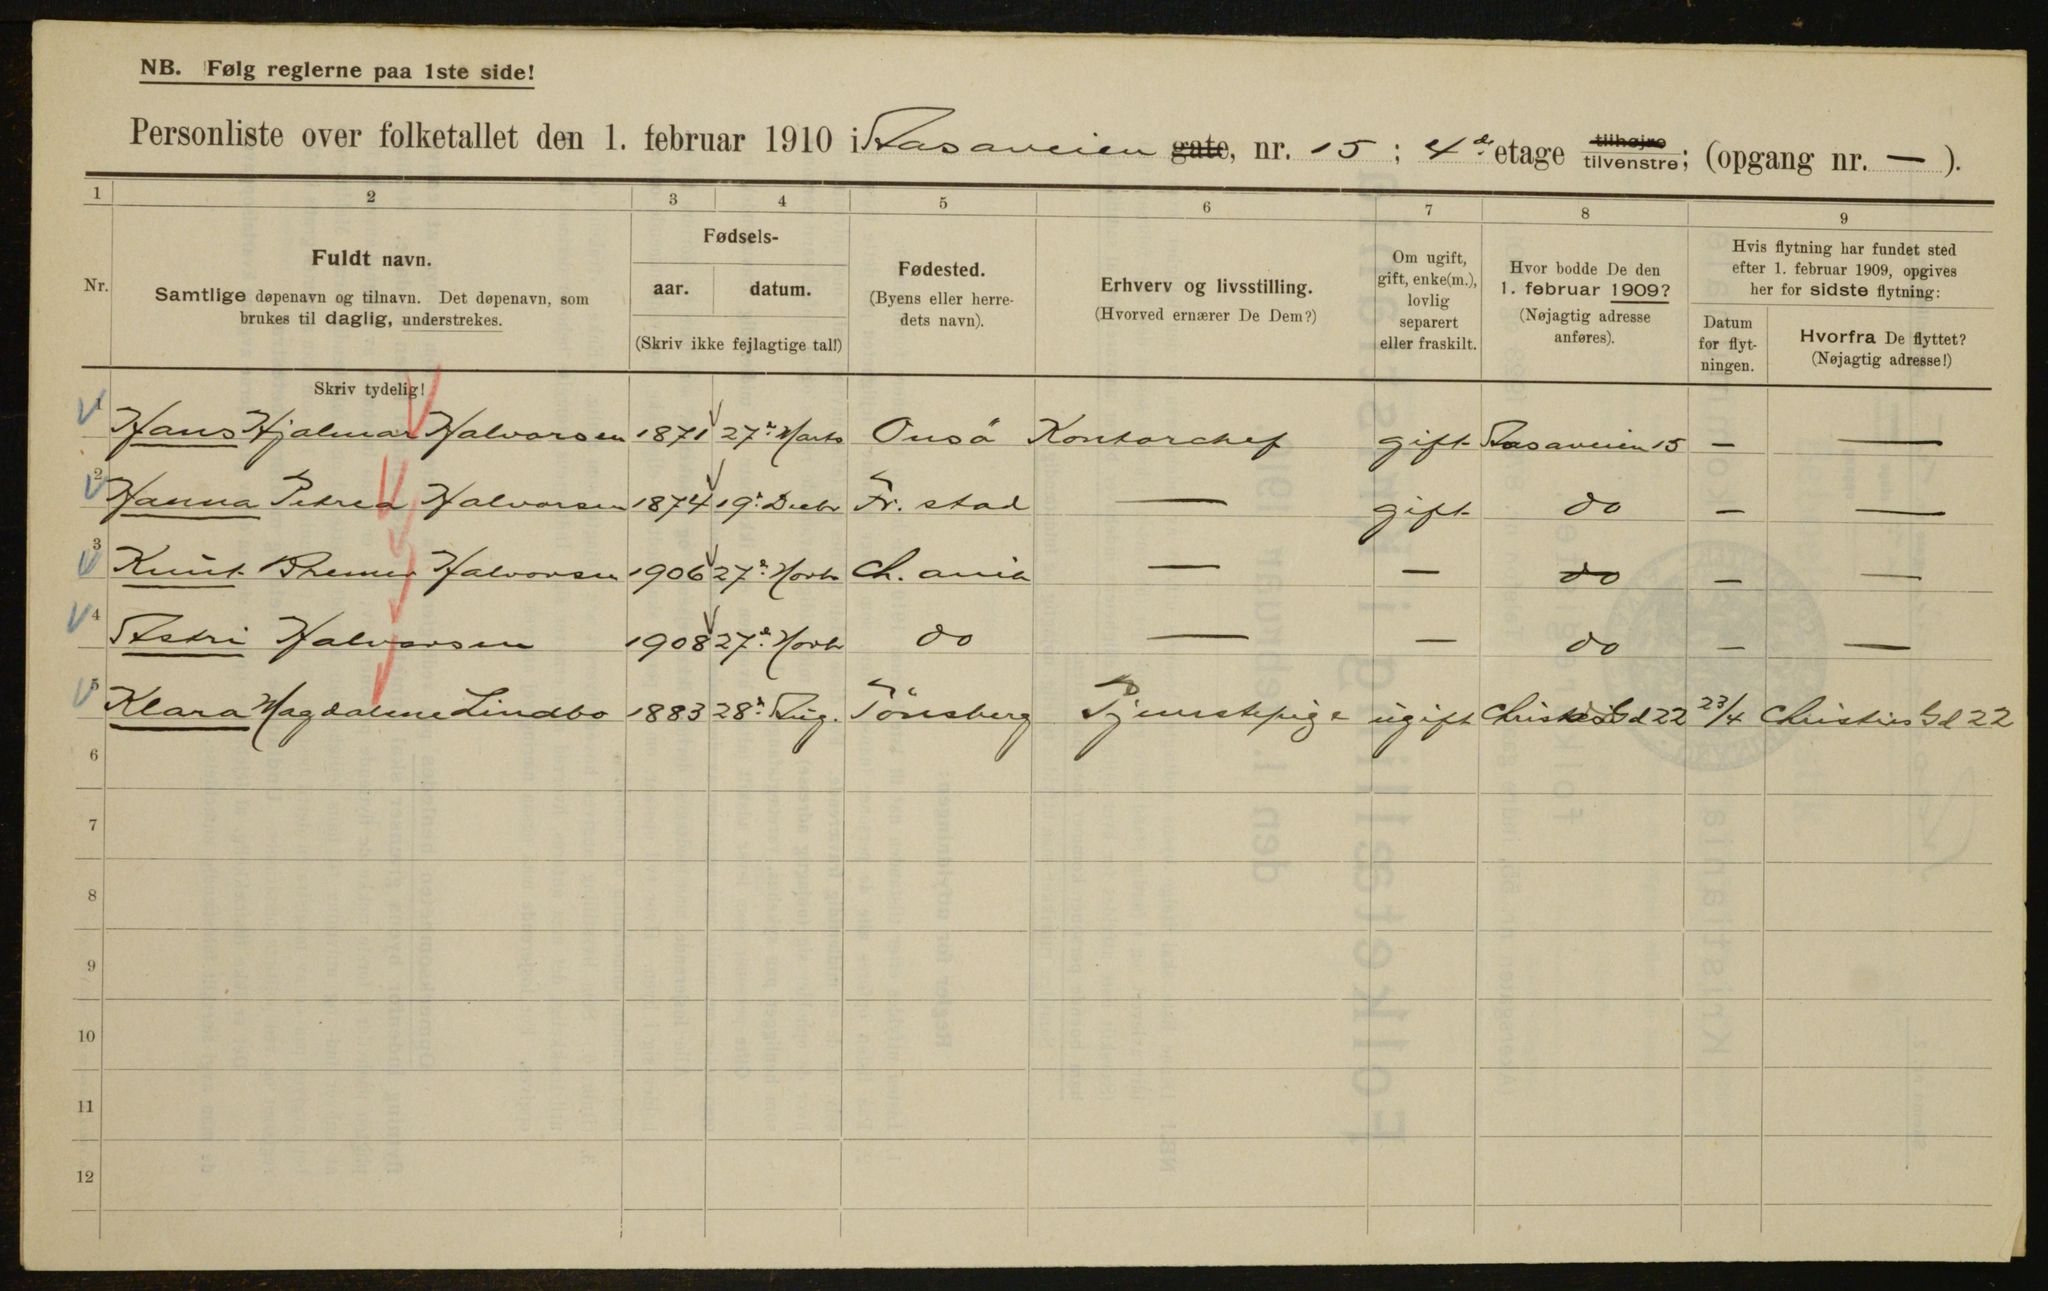 NB. Følg reglerne paa 1ste side!
Personliste over folketallet den 1. februar 1910 i Aasaveien gate, nr. 15 ; 4de etage tilhøjre tilvenstre; (opgang nr. — ).
1 2 3 4 5 6 7 8 9
Nr.
Fuldt navn.
Samtlige døpenavn og tilnavn. Det døpenavn, som
brukes til daglig, understrekes.
Fødsels-
aar. datum.
(Skriv ikke fejlagtige tal!)
Fødested.
(Byens eller herre-
dets navn).
Erhverv og livsstilling.
(Hvorved ernærer De Dem?)
Om ugift,
gift, enke(m.),
lovlig
separert
eller fraskilt.
Hvor bodde De den
1. februar 1909?
(Nøjagtig adresse
anføres).
Hvis flytning har fundet sted
efter 1. februar 1909, opgives
her for sidste flytning:
Datum
for flyt-
ningen.
Hvorfra De flyttet?
(Nøjagtig adresse!)
Skriv tydelig!
1 Hans Hjalmar Halvorsen 1871 27de Marts Onsö Kontorchef gift Aasaveien 15 — —
2 Hanna Petrea Halvorsen 1874 19de Decbr Fr. stad — gift do — —
3 Knut Halvorsen 1906 27de Novbr Ch. ania — — do — —
4 Astri Halvorsen 1908 27de Novbr do — — do — —
5 Klara Magdalene Lindbo 1883 28de Aug. Tönsberg Tjenestepige ugift Christies Gd 22 23/4 Christies Gd 22
6
7
8
9
10
11
12